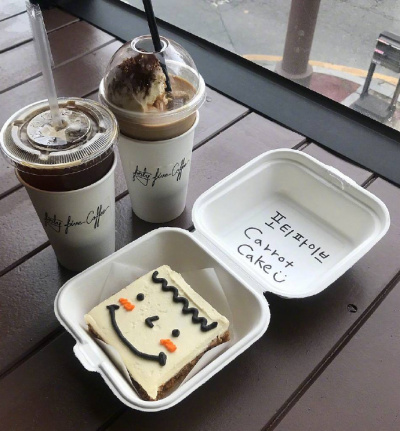 forty five Coffee
forty five Coffee
포티파이브
Carrot
Cake